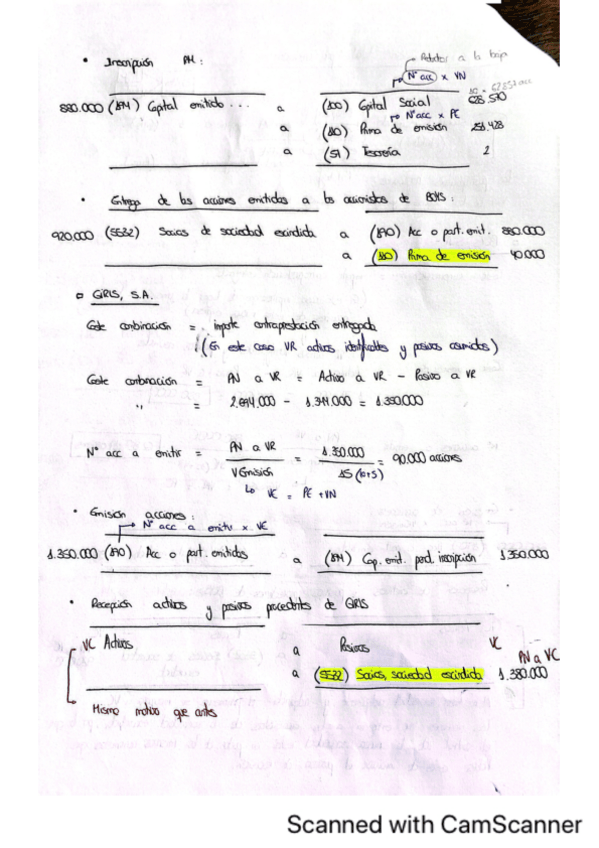 • Inscripción RM:
Redondear a la baja
Nº acc x VN
880.000 (194) Capital emitido ... a (100) Capital Social 628.570
Nº acc x PE
a (110) Prima de emisión 251.428
a (57) Tesorería 2
• Entrega de las acciones emitidas a los accionistas de BOYS:
920.000 (5532) Socios de sociedad escindida a (190) Acc o part. emit. 880.000
a (110) Prima de emisión 40.000
GIRLS, S.A.
Coste combinación = importe contraprestación entregada
(En este caso VR activos identificables y pasivos asumidos)
Coste combinación = PN a VR = Activo a VR - Pasivo a VR
" = 2.694.000 - 1.344.000 = 1.350.000
Nº acc a emitir = PN a VR / VEmisión = 1.350.000 / 15 (10+5) = 90.000 acciones
VE = PE + VN
• Emisión acciones:
Nº acc a emitir x VE
1.350.000 (190) Acc o part. emitidas a (194) Cap. emit. pend. inscripción 1.350.000
• Recepción activos y pasivos procedentes de GIRLS
VC Activos a Pasivos VC
PN a VC
a (5532) Socios, sociedad escindida 1.380.000
Mismo motivo que antes
Scanned with CamScanner